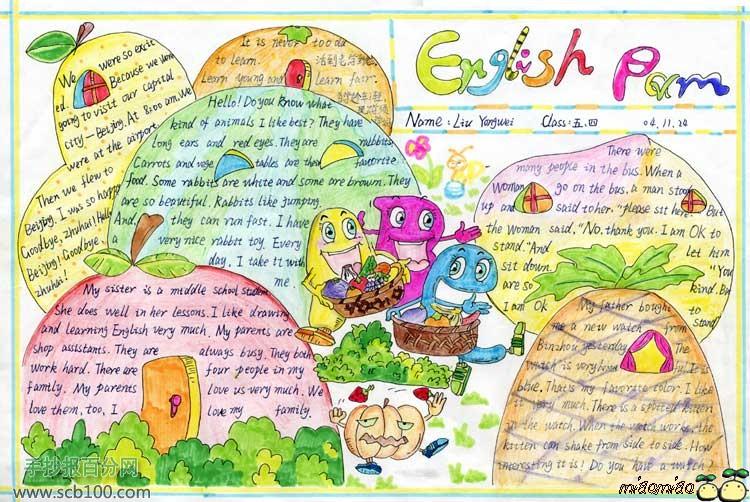 English Pam
Name: Liu Yongwei Class: 五.四 04.11.24
We were so excite
ed. Because we were
going to visit our capital
city—Beijing. At 8:00 am. We
were at the airport.
Then we flew to
Beijing. I was so happy
Goodbye, zhuhai! Hello
Beijing! Goodbye,
zhuhai!
It is never too old
to learn.
Learn young and learn fair.
Hello! Do you know what
kind of animals I like best? They have
Long ears and red eyes. They are rabbits
Carrots and vege tables are their favorite
food. Some rabbits are white and some are brown. They
are so beautiful. Rabbits like jumping.
And, they can run fast. I have
a very nice rabbit toy. Every
day, I take it with
me.
My sister is a middle school student
She does well in her lessons. I like drawing
and learning English very much. My parents are
shop assistants. They are always busy. They both
work hard. There are four people in my
family. My parents love us very much. We
love them, too, I love my family.
There were
many people in the bus. When a
Woman go on the bus, a man stoop
up and said to her. "please sit here. But
the Woman said, "No, thank you. I am OK to
stand." And let him
sit down. "You
are so kind. But
I am Ok to
stand"
My father bought
me a new watch from
Binzhou yesterday. The
watch is very beautiful. It is
blue. That's my favorite color. I like
it very much. There is a spotted kitten
in the watch. When the watch works, the
kitten can shake from side to side. How
interesting it is! Do you have a watch?
手抄报百分网
www.scb100.com
miāomiāo